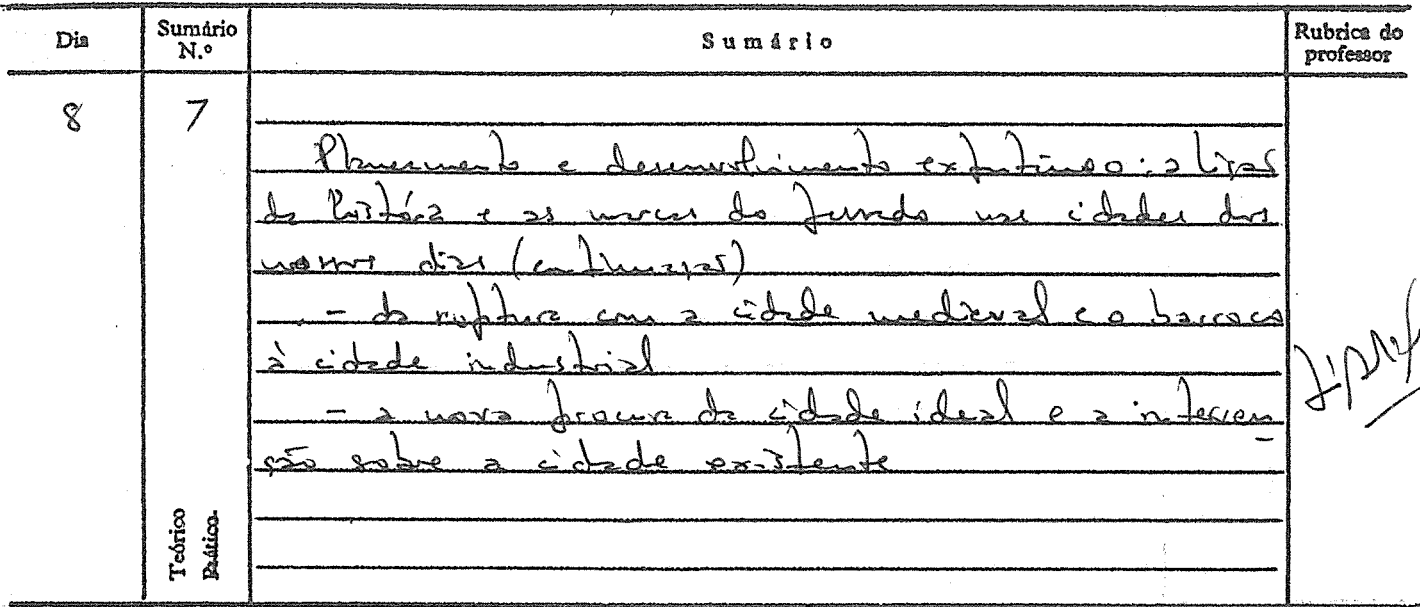 Dia
Sumário N.º
Sumário
Rubrica do professor
8
7
Planeamento e desenvolvimento : a lição
da história e as marcas do passado nas cidades dos
nossos dias (continuação)
- da ruptura com a cidade medieval e o barroco
à cidade industrial
- a nova procura da cidade ideal e a interven
ção sobre a cidade existente
Teórico
Prático